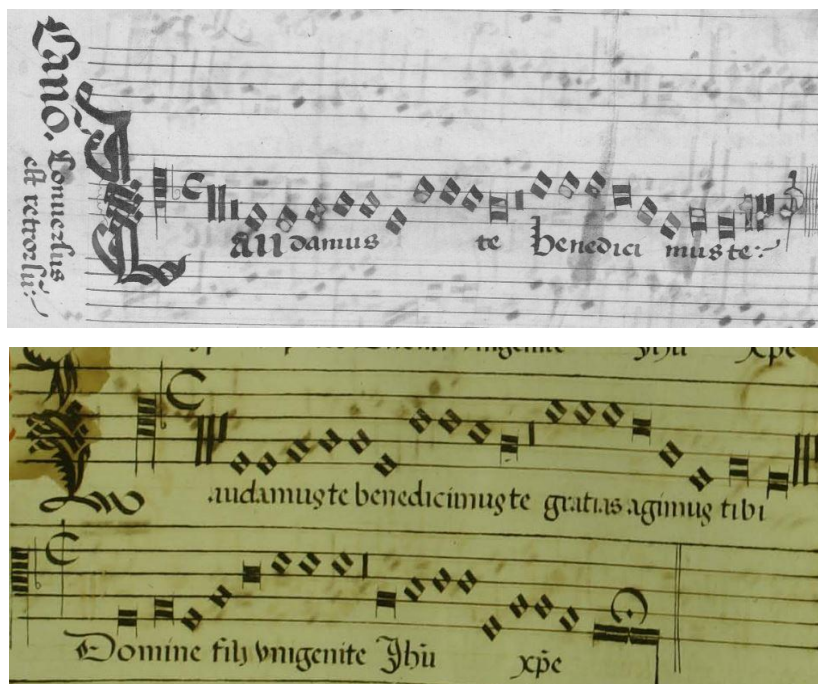 Canõ. Conuersus
est retrorsũ:
Laudamus te benedici mus te:
ỹhũ xp̃e
Laudamus te benedicimus te gratias agimus tibi
Domine filij vnigenite Jhũ xp̃e